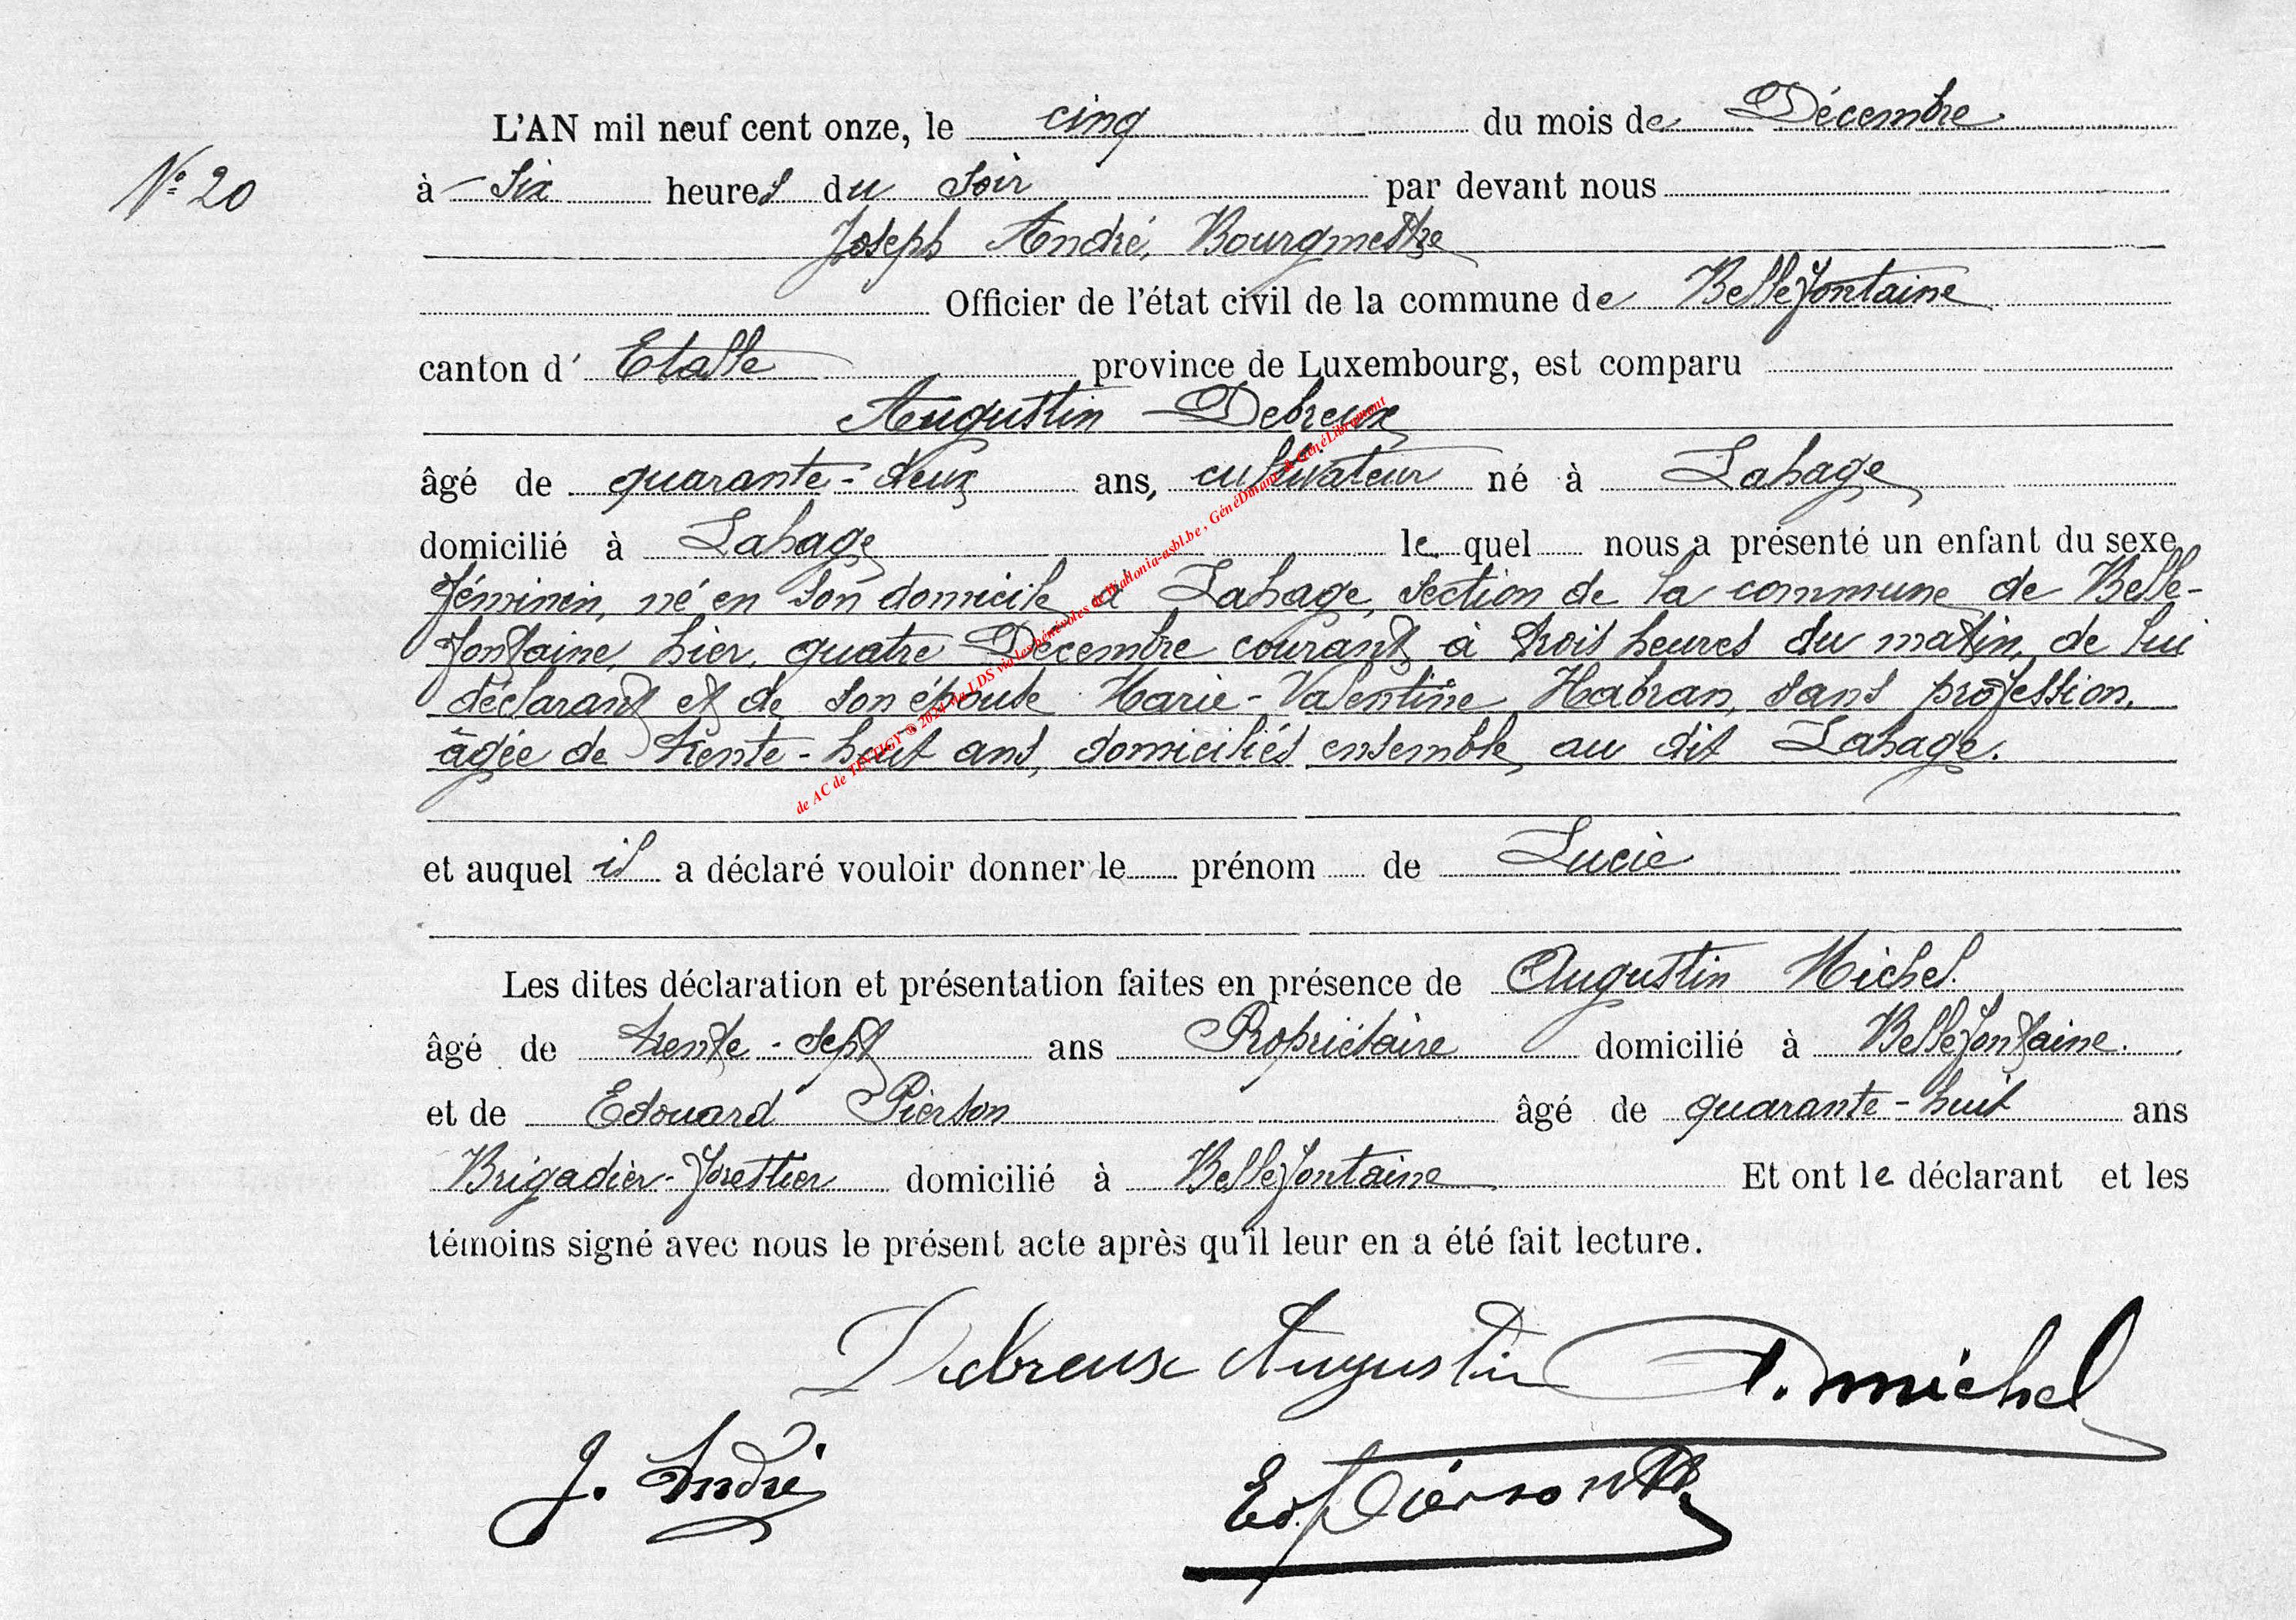 L'AN mil neuf cent onze, le cinq du mois de Décembre
N° 20
à six heures du soir par devant nous
Joseph André, Bourgmestre
Officier de l'état civil de la commune de Bellefontaine
canton d' Etalle province de Luxembourg, est comparu
Augustin Debreux
âgé de quarante-deux ans, cultivateur né à Lahage
domicilié à Lahage le quel nous a présenté un enfant du sexe
féminin, né en son domicile à Lahage, section de la commune de Belle-
fontaine, hier, quatre Décembre courant, à trois heures du matin, de lui
déclarant et de son épouse Marie-Valentine Habran, sans profession,
âgée de trente-huit ans, domiciliés ensemble au dit Lahage.
et auquel il a déclaré vouloir donner le prénom de Lucie
Les dites déclaration et présentation faites en présence de Augustin Michel
âgé de trente-sept ans Propriétaire domicilié à Bellefontaine.
et de Edouard Pierson âgé de quarante-huit ans
Brigadier-forestier domicilié à Bellefontaine Et ont le déclarant et les
témoins signé avec nous le présent acte après qu'il leur en a été fait lecture.
Debreux Augustin A. Michel
J. André Ed. Pierson
de AC de TINTIGY © 2024 de LDS via les bénévoles de Wallonia-asbl.be, GénéDinant & GénéLibramont